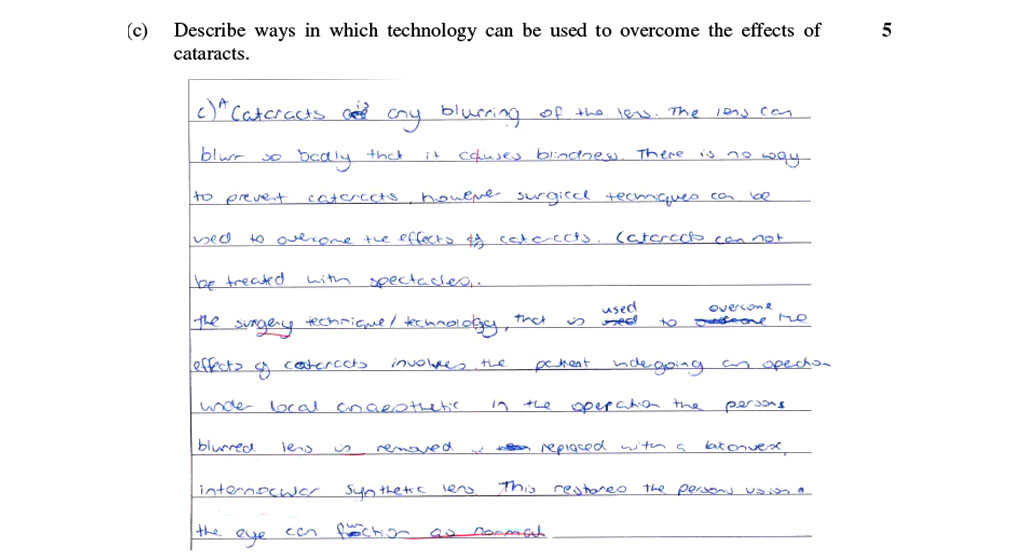 (c) Describe ways in which technology can be used to overcome the effects of 5
cataracts.
c) A Catcracts is any blurring of the lens. The lens can
blurr so badly that it causes blindness. There is no way
to prevent cataracts, however surgical tecniques can be
used to overcome the effects of cataracts. Cataracts can not
be treated with spectacles.
The surgery technique / technology, that is used to overcome the
effects of cataracts involves the patient undegoing an opection
under local anaesthetic in the operation the persons
blurred lens is removed & replaced with a biconvex,
internocular synthetic lens. This restores the persons vision &
the eye can function as normal.